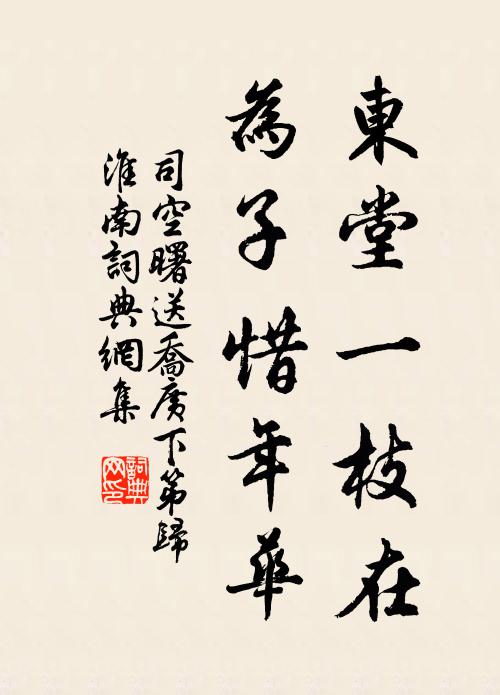 東堂一枝在
為子惜年華
司空曙送喬廣下第歸
淮南詞典網集
詞典网印